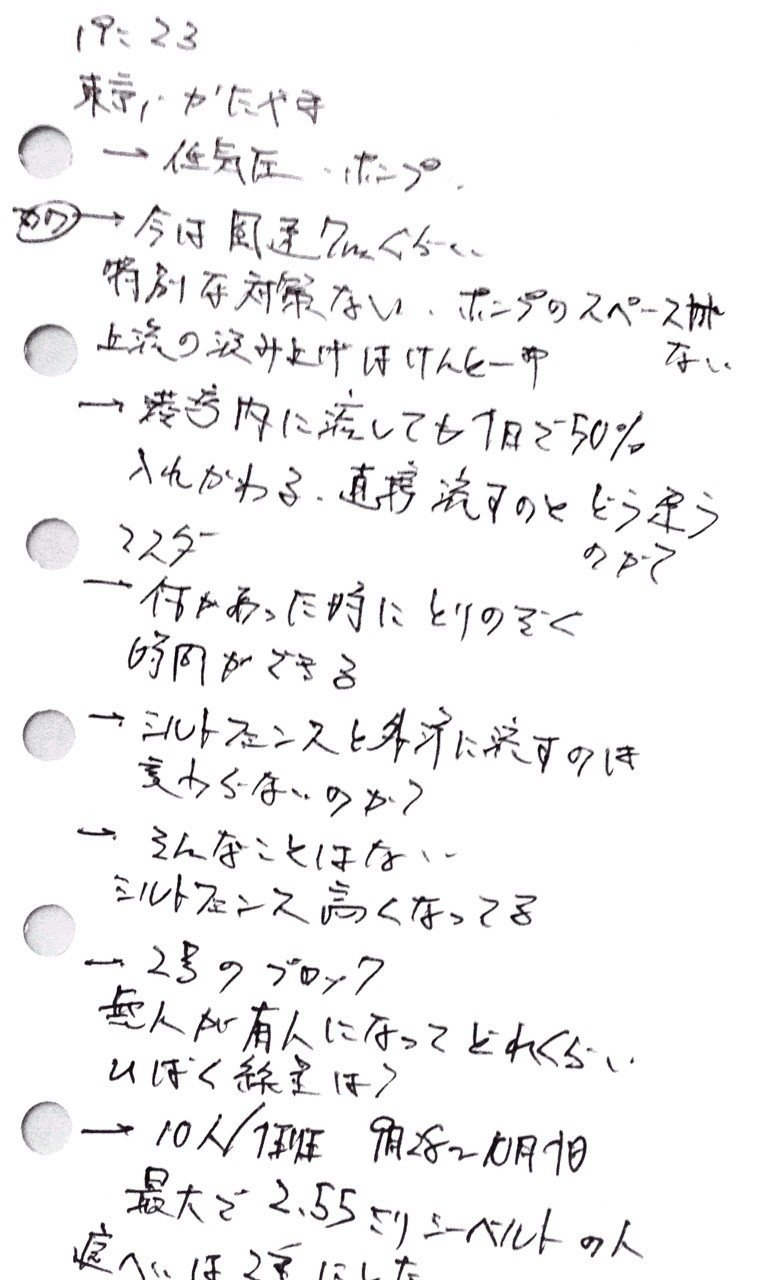 19:23
東京、かたやま
→ 低気圧・ポンプ
→ 今は風速7mくらい
特別な対策ない、ポンプのスペースが
ない
上流の汲み上げはけんとー中
→ 港湾内に流しても1日で50%
入れかわる、直接流すのとどう
のか?
マスダ
→ 何かあった時にとりのぞく
時間ができる
→ シルトフェンスと外洋に流すのは
変わらないのか?
→ そんなことはない
シルトフェンス高くなってる
→ 2号のブロック
無人が有人になってどれくらい
ひばく線量は?
→ 10人/ 9月28〜10月1日
最大で2.55ミリシーベルトの人
は2重にした